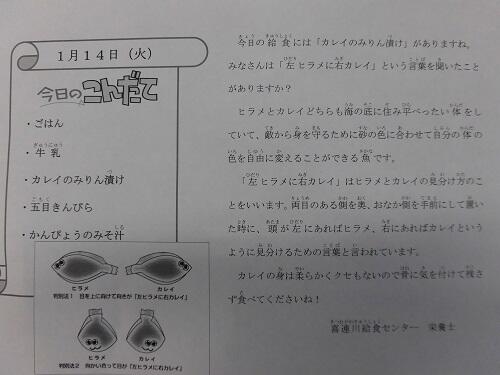 1月14日(火)
今日のこんだて
・ごはん
・牛乳
・カレイのみりん漬け
・五目きんぴら
・かんぴょうのみそ汁
ヒラメ
カレイ
判別法1 目を上に向けて向きが「左ヒラメに右カレイ」
ヒラメ
カレイ
判別法2 向かい合って目が「左ヒラメに右カレイ」
今日の給食には「カレイのみりん漬け」がありますね。
みなさんは「左ヒラメに右カレイ」という言葉を聞いたこと
がありますか?
ヒラメとカレイどちらも海の底に住み平べったい体をし
ていて、敵から身を守るために砂の色に合わせて自分の体の
色を自由に変えることができる魚です。
「左ヒラメに右カレイ」はヒラメとカレイの見分け方のこ
とをいいます。両目のある側を奥、おなか側を手前にして置い
た時に、頭が左にあればヒラメ、右にあればカレイという
ように見分けるための言葉と言われています。
カレイの身は柔らかくクセもないので骨に気を付けて残さ
ず食べてくださいね!
喜連川給食センター 栄養士